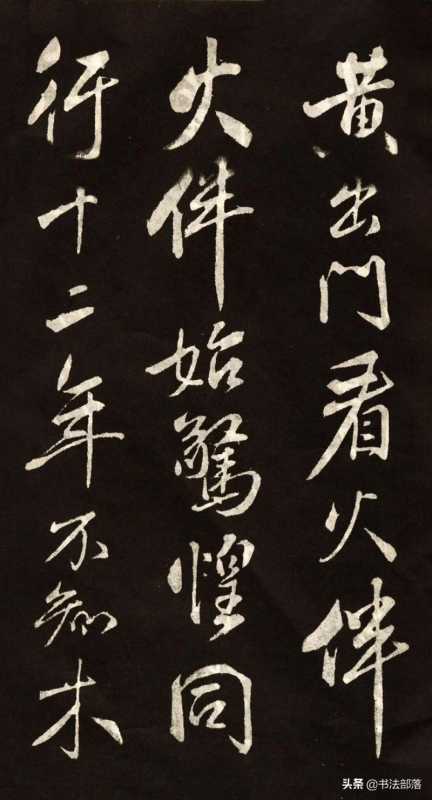 黄出門看火伴
火伴始驚惶同
行十二年不知木
头条 @书法部落